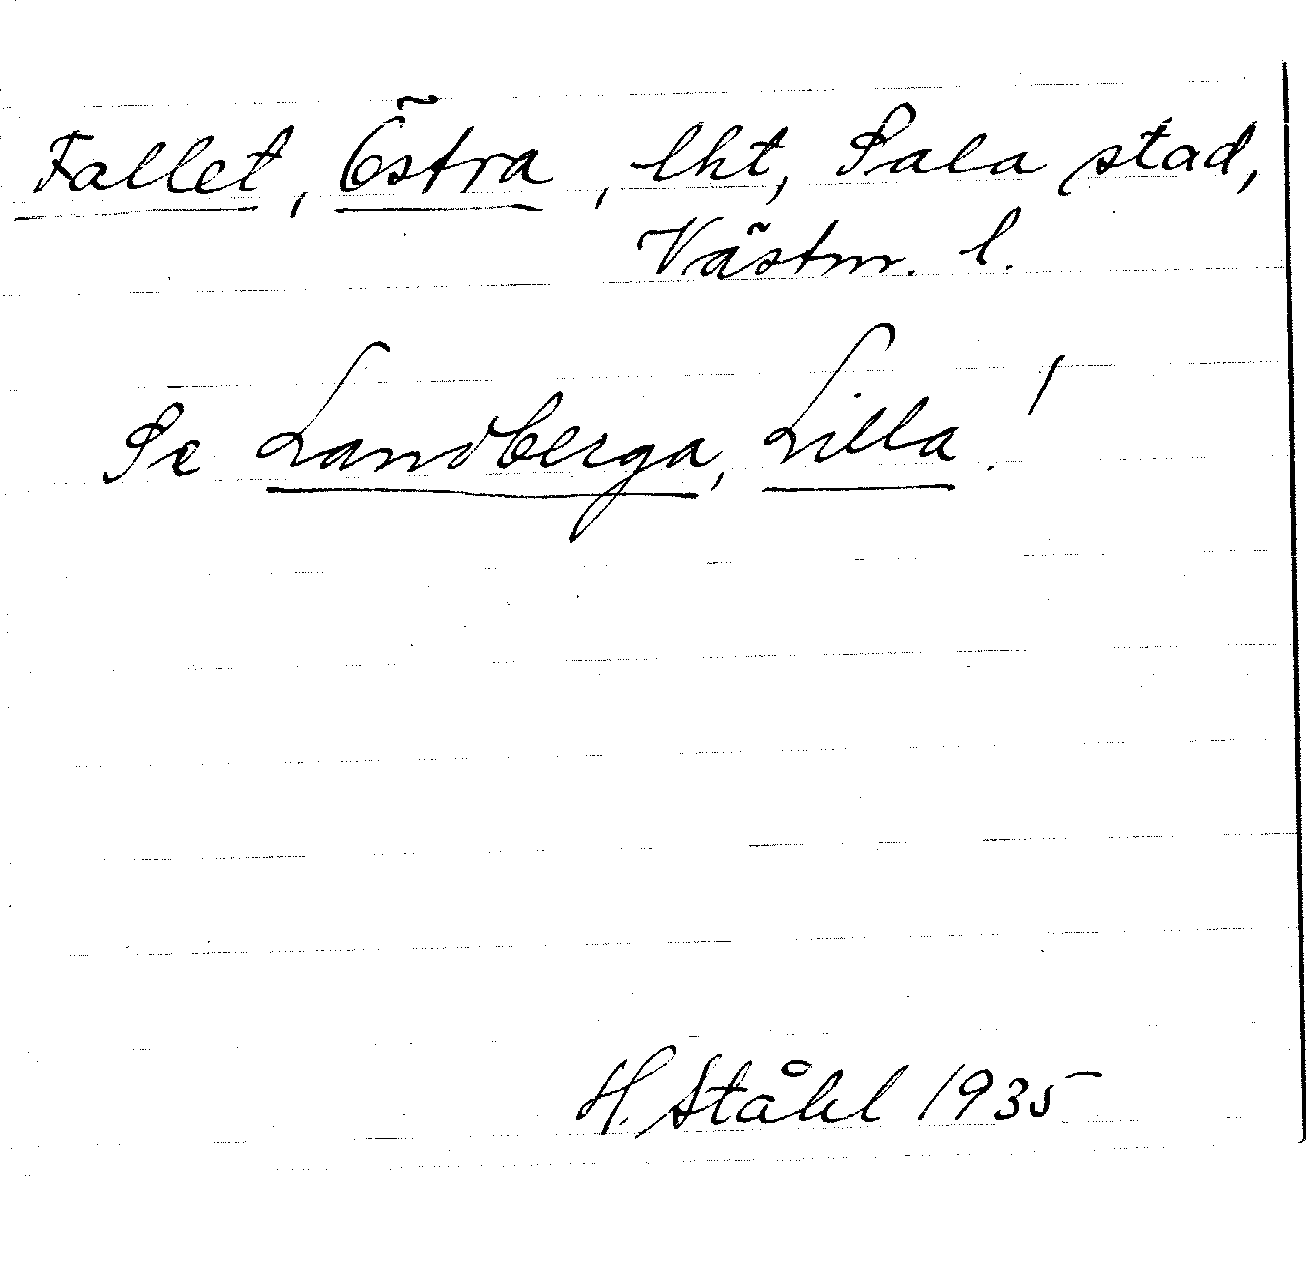 Fallet, Östra, lht, Sala stad,
Västm. l.
Se Landberga, Lilla!
H. Ståhl 1935